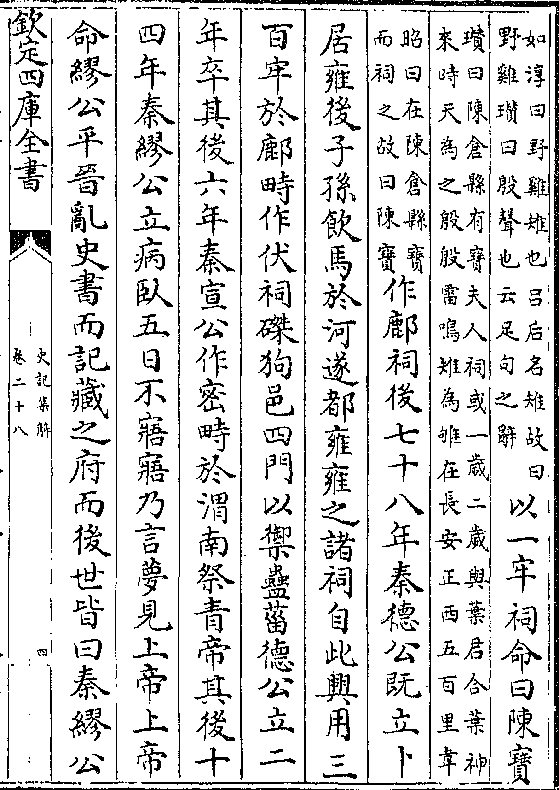 如淳曰野雞雉也呂后名雉故曰
野雞瓚曰殷聲也云足句之辭
以一牢祠命曰陳寶
瓚曰陳倉縣有寶夫人祠或一歲二歲與葉君合葉神
來時天為之殷殷雷鳴雉為雊在長安正西五百里韋
昭曰在陳倉縣寶
而祠之故曰陳寶
作鄜祠後七十八年秦德公既立卜
居雍後子孫飲馬於河遂都雍雍之諸祠自此興用三
百牢於鄜畤作伏祠磔狗邑四門以禦蠱菑德公立二
年卒其後六年秦宣公作密畤於渭南祭青帝其後十
四年秦繆公立病臥五日不寤寤乃言夢見上帝上帝
命繆公平晉亂史書而記藏之府而後世皆曰秦繆公
欽定四庫全書
史記集解
卷二十八
四